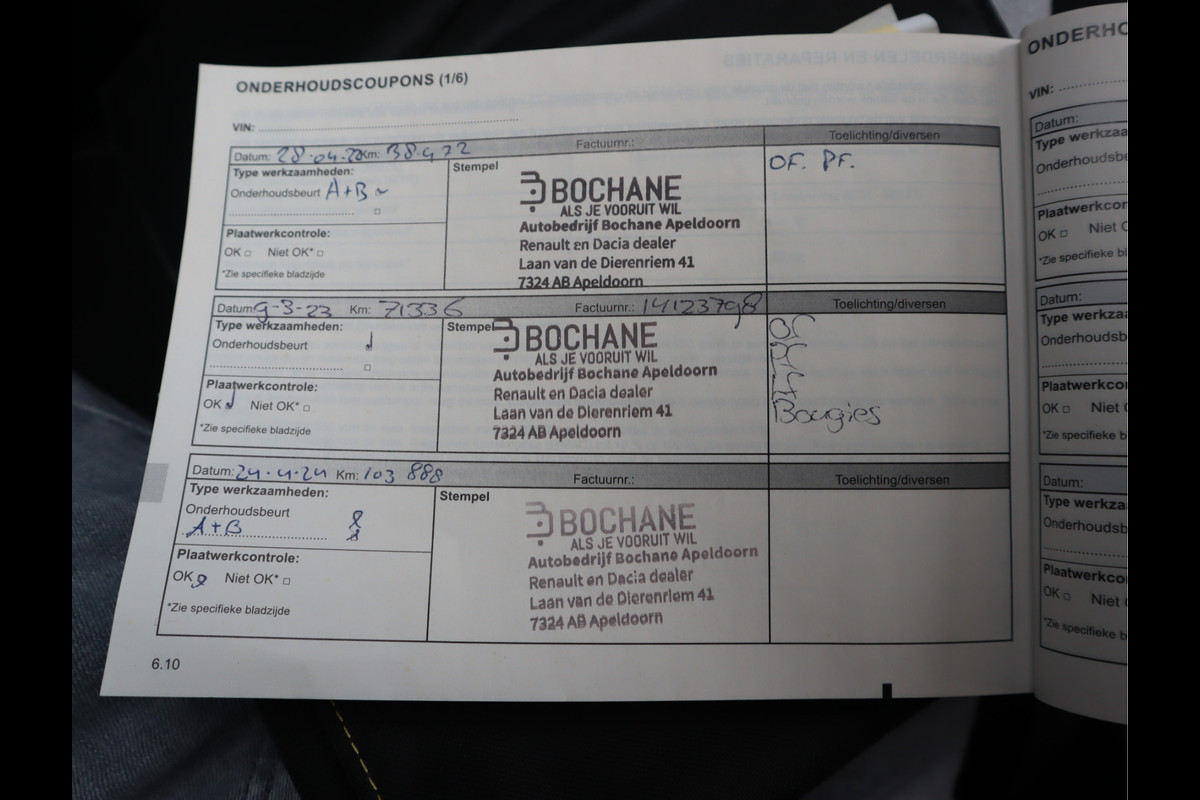 ONDERHOUDSCOUPONS (1/6)
VIN:
Datum: 28-04-22 Km: 38.922 Factuurnr.: Toelichting/diversen
Type werkzaamheden:
Onderhoudsbeurt A+B
Plaatwerkcontrole:
OK □ Niet OK* □
*Zie specifieke bladzijde
Stempel
BOCHANE
ALS JE VOORUIT WIL
Autobedrijf Bochane Apeldoorn
Renault en Dacia dealer
Laan van de Dierenriem 41
7324 AB Apeldoorn
OF. PF.
Datum: 9-3-23 Km: 71336 Factuurnr.: 14123798 Toelichting/diversen
Type werkzaamheden:
Onderhoudsbeurt
Plaatwerkcontrole:
OK Niet OK* □
*Zie specifieke bladzijde
Stempel
BOCHANE
ALS JE VOORUIT WIL
Autobedrijf Bochane Apeldoorn
Renault en Dacia dealer
Laan van de Dierenriem 41
7324 AB Apeldoorn
Bougies
Datum: 24-4-24 Km: 103 888 Factuurnr.: Toelichting/diversen
Type werkzaamheden:
Onderhoudsbeurt
A+B
Plaatwerkcontrole:
OK Niet OK* □
*Zie specifieke bladzijde
Stempel
BOCHANE
ALS JE VOORUIT WIL
Autobedrijf Bochane Apeldoorn
Renault en Dacia dealer
Laan van de Dierenriem 41
7324 AB Apeldoorn
6.10
ONDERHO
VIN:
Datum:
Type werkzaa
Onderhoudsbe
Plaatwerkcor
OK □ Niet O
*Zie specifieke bl
Datum:
Type werkza
Onderhoudsb
Plaatwerkco
OK □ Niet
*Zie specifieke b
Datum:
Type werkza
Onderhoudsb
Plaatwerkco
OK □ Niet
*Zie specifieke b